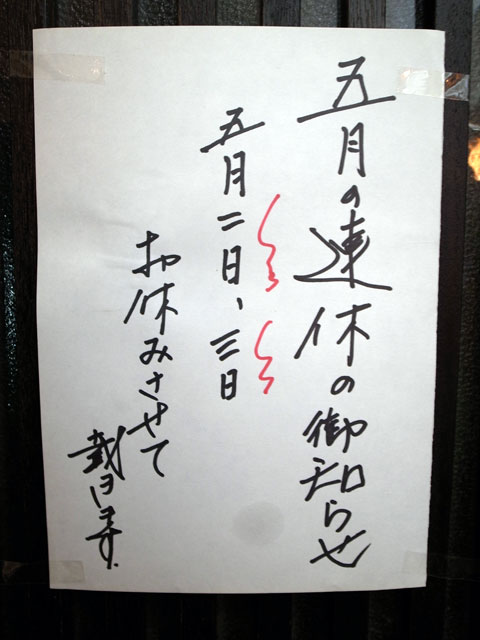 五月の連休の御知らせ
五月二日、三日
お休みさせて
戴きます.